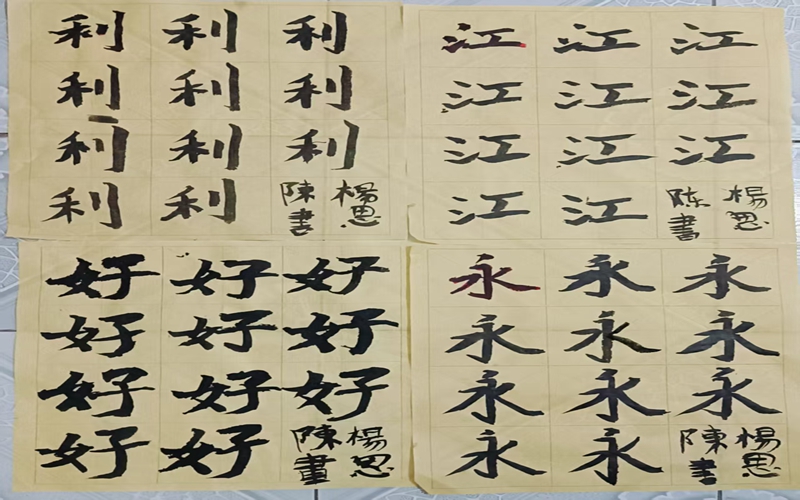 利 利 利
利 利 利
利 利 利
利 利
楊思
陳書
江 江 江
江 江 江
江 江 江
江 江
楊思
陈書
好 好 好
好 好 好
好 好 好
好 好
楊思
陳書
永 永 永
永 永 永
永 永 永
永 永
楊思
陳書